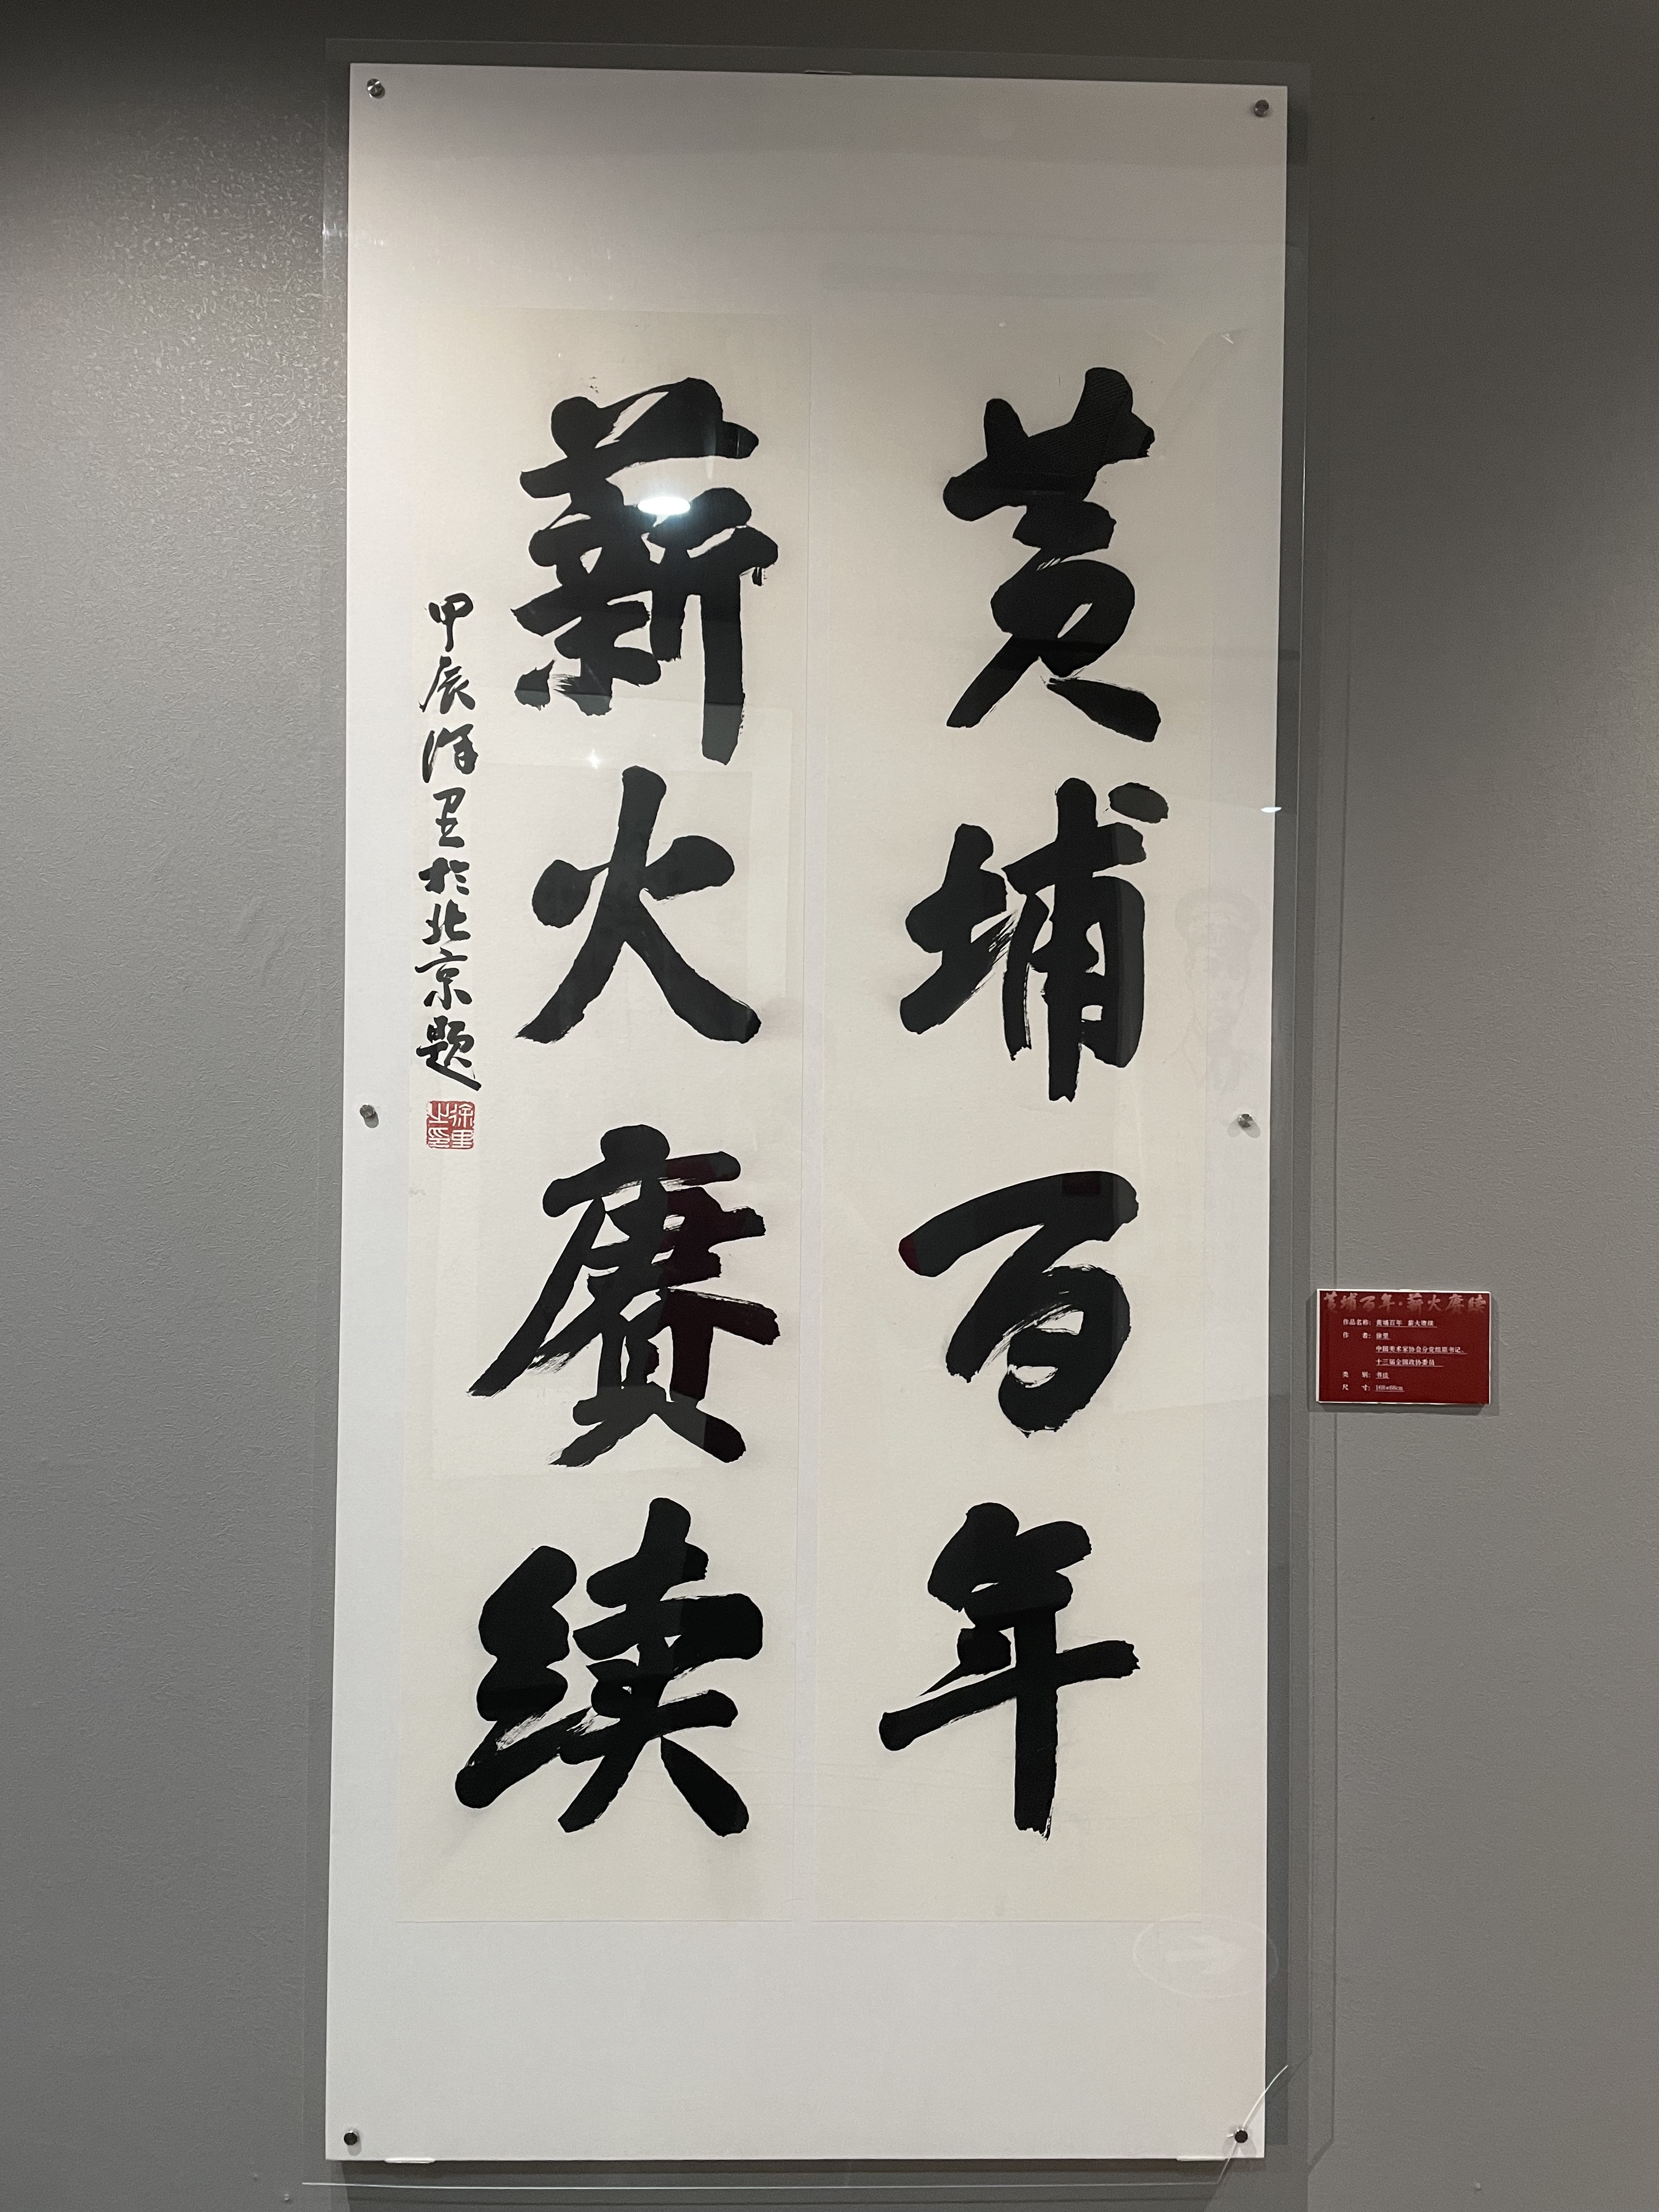 黄埔百年
薪火赓续
甲辰徐里于北京题
徐里之印
黄埔百年·薪火赓续
作品名称：黄埔百年 薪火赓续
作 者：徐里
中国美术家协会分党组原书记、
十三届全国政协委员
类 别：书法
尺 寸：168×68cm